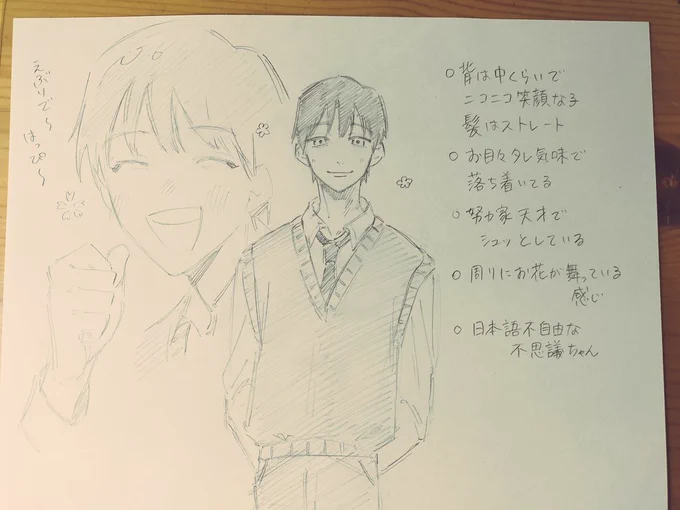 えぶりで〜
はっぴ〜
○ 背は中くらいで
ニコニコ笑顔な子
髪はストレート
○ お目々タレ気味で
落ち着いてる
○ 努力家天才で
シュッとしている
○ 周りにお花が舞っている
感じ
○ 日本語不自由な
不思議ちゃん